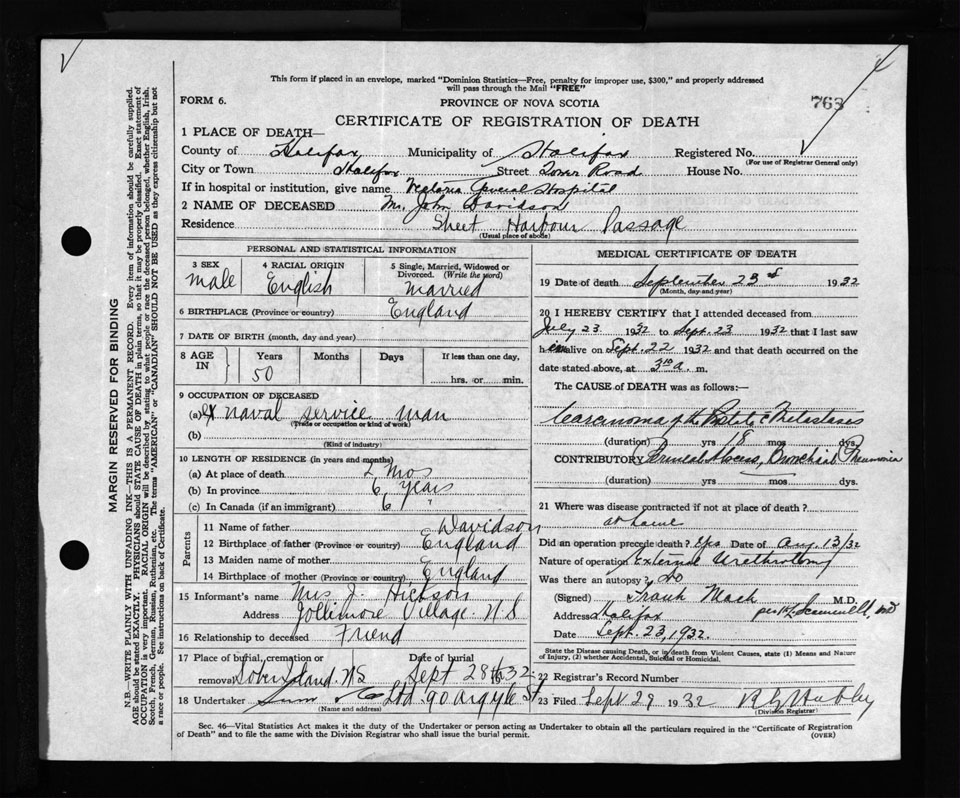 This form if placed in an envelope, marked "Dominion Statistics—Free, penalty for improper use, $300," and properly addressed
will pass through the Mail "FREE"
FORM 6.
PROVINCE OF NOVA SCOTIA
763
CERTIFICATE OF REGISTRATION OF DEATH
1 PLACE OF DEATH—
County of Halifax Municipality of Halifax Registered No.
(For use of Registrar General only)
City or Town Halifax Street Tower Road House No.
If in hospital or institution, give name Victoria General Hospital
2 NAME OF DECEASED Mr. John Davidson
Residence Sheet Harbour Passage
(Usual place of abode)
PERSONAL AND STATISTICAL INFORMATION
3 SEX
male
4 RACIAL ORIGIN
English
5 Single, Married, Widowed or
Divorced. (Write the word)
married
6 BIRTHPLACE (Province or country) England
7 DATE OF BIRTH (month, day and year)
8 AGE IN Years Months Days If less than one day,
50 hrs. or min.
9 OCCUPATION OF DECEASED
(a) ex naval service man
(Trade or occupation or kind of work)
(b)
(Kind of industry)
10 LENGTH OF RESIDENCE (in years and months)
(a) At place of death 2 mos
(b) In province 6 years
(c) In Canada (if an immigrant) 6 "
Parents
11 Name of father Davidson
12 Birthplace of father (Province or country) England
13 Maiden name of mother
14 Birthplace of mother (Province or country) England
15 Informant's name Mrs J. Hickson
Address Jollimore Village. N.S
16 Relationship to deceased Friend
17 Place of burial, cremation or removal N.S Date of burial Sept 28th 32
18 Undertaker Snow & Co Ltd. 90 Argyle St
(Name and address)
MEDICAL CERTIFICATE OF DEATH
19 Date of death September 23rd 1932
(Month, day and year)
20 I HEREBY CERTIFY that I attended deceased from
July 23 1932 to Sept. 23 1932 that I last saw
him alive on Sept. 22 1932 and that death occurred on the
date stated above, at 3 a. m.
The CAUSE of DEATH was as follows:—
Carcinoma of the Prostate c Metastases
(duration) yrs 18 mos dys.
CONTRIBUTORY Perineal Abcess, Bronchial Pneumonia
(duration) yrs mos dys.
21 Where was disease contracted if not at place of death?
at home
Did an operation precede death? Yes Date of Aug. 13/32
Nature of operation External Urethrotomy
Was there an autopsy? No
(Signed) Frank Mack M.D.
Address Halifax
Date Sept. 23, 1932.
State the Disease causing Death, or in death from Violent Causes, state (1) Means and Nature
of Injury, (2) whether Accidental, Suicidal or Homicidal.
22 Registrar's Record Number
23 Filed Sept 29 1932
(Division Registrar)
Sec. 46—Vital Statistics Act makes it the duty of the Undertaker or person acting as Undertaker to obtain all the particulars required in the "Certificate of Registration
of Death" and to file the same with the Division Registrar who shall issue the burial permit.
(OVER)
MARGIN RESERVED FOR BINDING
N.B.—WRITE PLAINLY WITH UNFADING INK—THIS IS A PERMANENT RECORD. Every item of information should be carefully supplied.
AGE should be stated EXACTLY. PHYSICIANS should STATE CAUSE OF DEATH in plain terms, so that it may be properly classified. Exact statement of
OCCUPATION is very important. RACIAL ORIGIN will be described by stating to what people or race the deceased person belonged, whether English, Irish,
Scotch, French, German, Russian, Ruthenian, etc. The terms "AMERICAN" or "CANADIAN" SHOULD NOT BE USED as they express citizenship but not
a race or people. See instructions on back of Certificate.